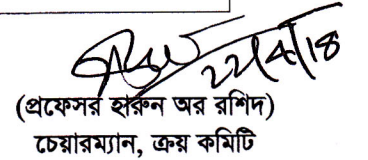 22/4/18
(প্রফেসর হারুন অর রশিদ)
চেয়ারম্যান, ক্রয় কমিটি